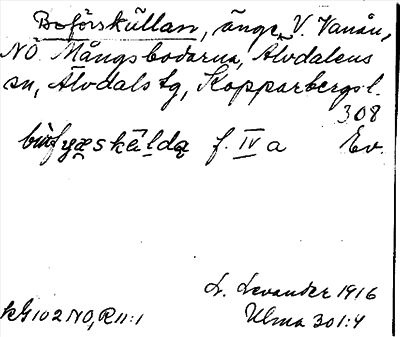 Boförskällan, änge, V. Vanån,
NÖ Mångsbodarna, Älvdalens
sn, Älvdals tg, Kopparbergs l.
308
f. IV a Ev.
L. Levander 1916
kG102 NO, R11:1 Ulma 301:4